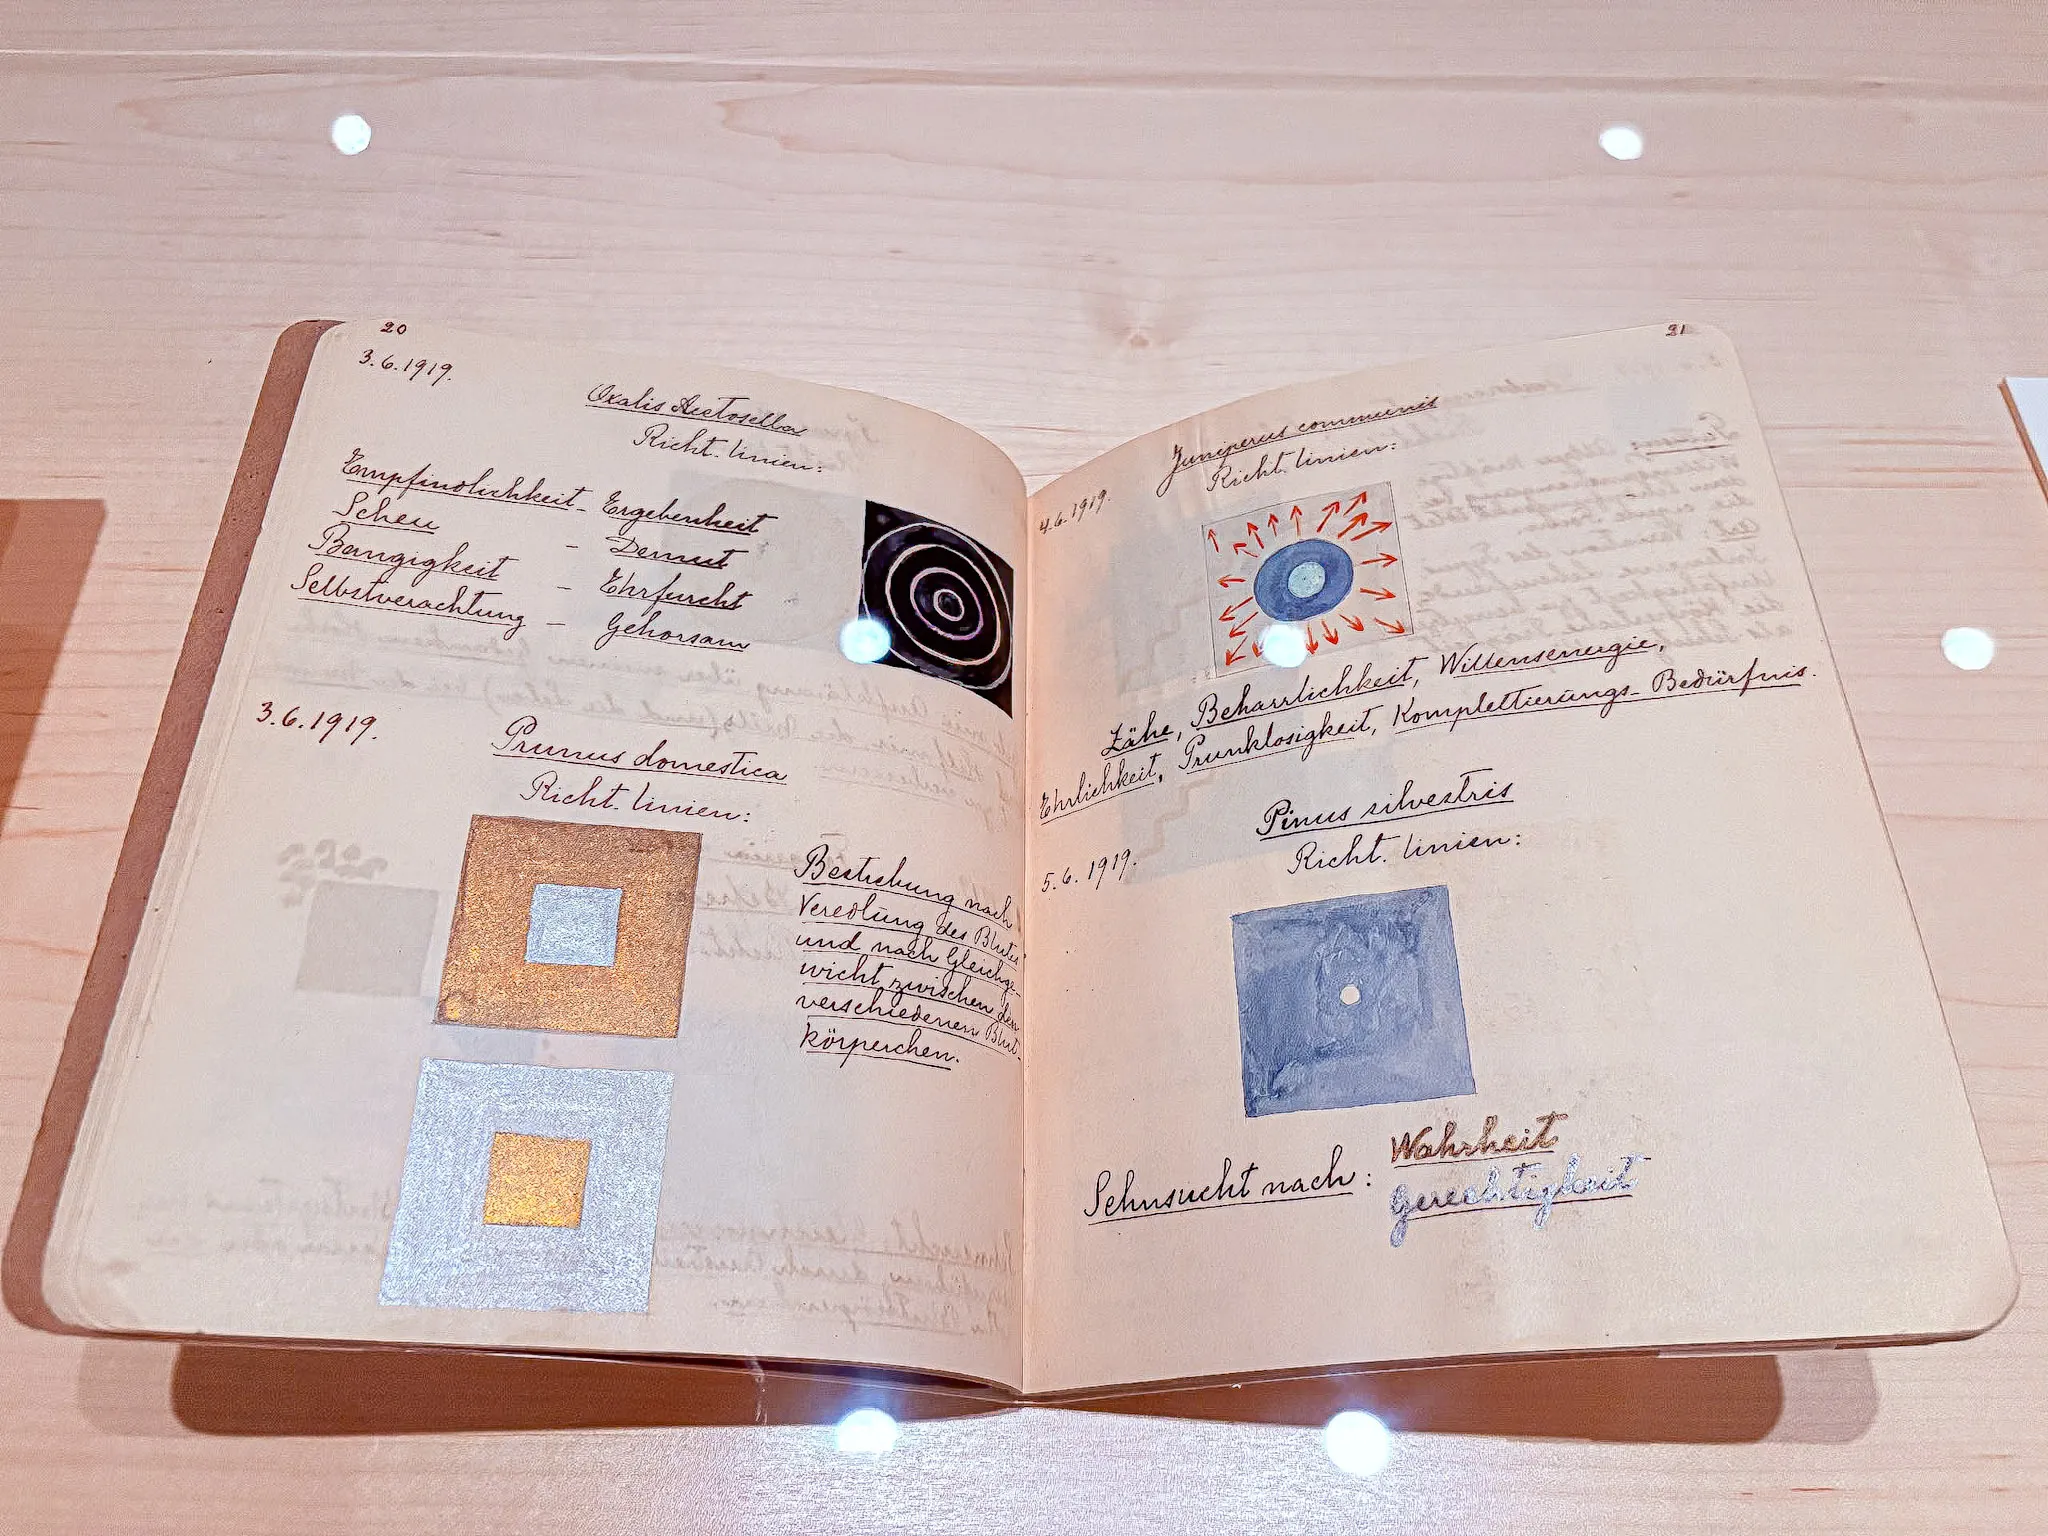 20
3.6.1919.
Oxalis Acetosella
Richt. linien:
Empfindlichkeit - Ergebenheit
Scheu - Demut
Bangigkeit - Ehrfurcht
Selbstverachtung - Gehorsam
3.6.1919.
Prunus domestica
Richt. linien:
Bestrebung nach
Veredlung des Blutes
und nach Gleichge-
wicht zwischen den
verschiedenen Blut-
körperchen.
21
Juniperus communis
Richt. linien:
4.6.1919.
Zähe, Beharrlichkeit, Willensenergie,
Ehrlichkeit, Prunklosigkeit, Komplettierungs-Bedürfnis.
Pinus silvestris
Richt. linien:
5.6.1919.
Sehnsucht nach: Wahrheit
Gerechtigkeit